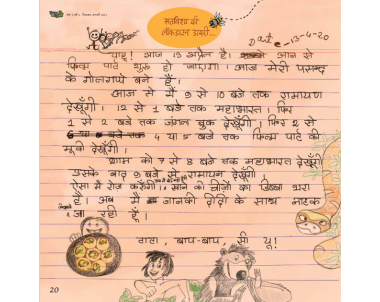 मनतिशा की
लॉकडाउन डायरी...
Date - 13-4-20
याहू! आज 13 अप्रैल है। आज से
फिल्म पार्ट शुरू हो जाएगा। आज मेरी पसन्द
के गोलगप्पे बने हैं।
आज से मैं 9 से 10 बजे तक रामायण
देखूँगी। 12 से 1 बजे तक महाभारत। फिर
1 से 2 बजे तक जंगल बुक देखूँगी। फिर 2 से
4 या 5 बजे तक फिल्म पार्ट की
मूवी देखूँगी।
शाम को 7 से 8 बजे तक महाभारत देखूँगी
उसके बाद 9 बजे से रामायण देखूँगी।
ऐसा मैं रोज़ करूँगी। खाने की चीज़ों का डिब्बा भरा
है। अब मैं जानकी दीदी के साथ नाटक
जा रही हूँ।
टाटा, बाय-बाय, सी यू!
20